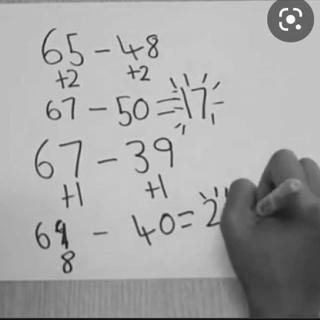 65 - 48
+2 +2
67 - 50 = 17
67 - 39
+1 +1
69 - 40 = 2
8